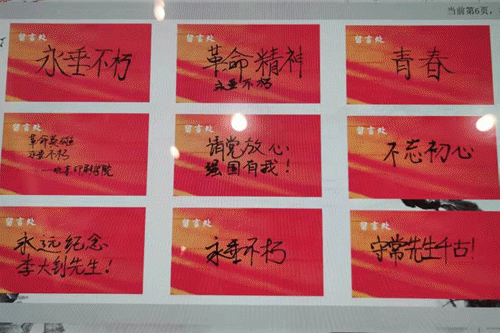 当前第6页,
留言处
永垂不朽
留言处
革命精神
永垂不朽
留言处
青春
留言处
革命英雄
永垂不朽
留言处
请党放心
强国有我!
留言处
不忘初心
留言处
永远纪念
李大钊先生!
留言处
永垂不朽
留言处
守常先生千古!